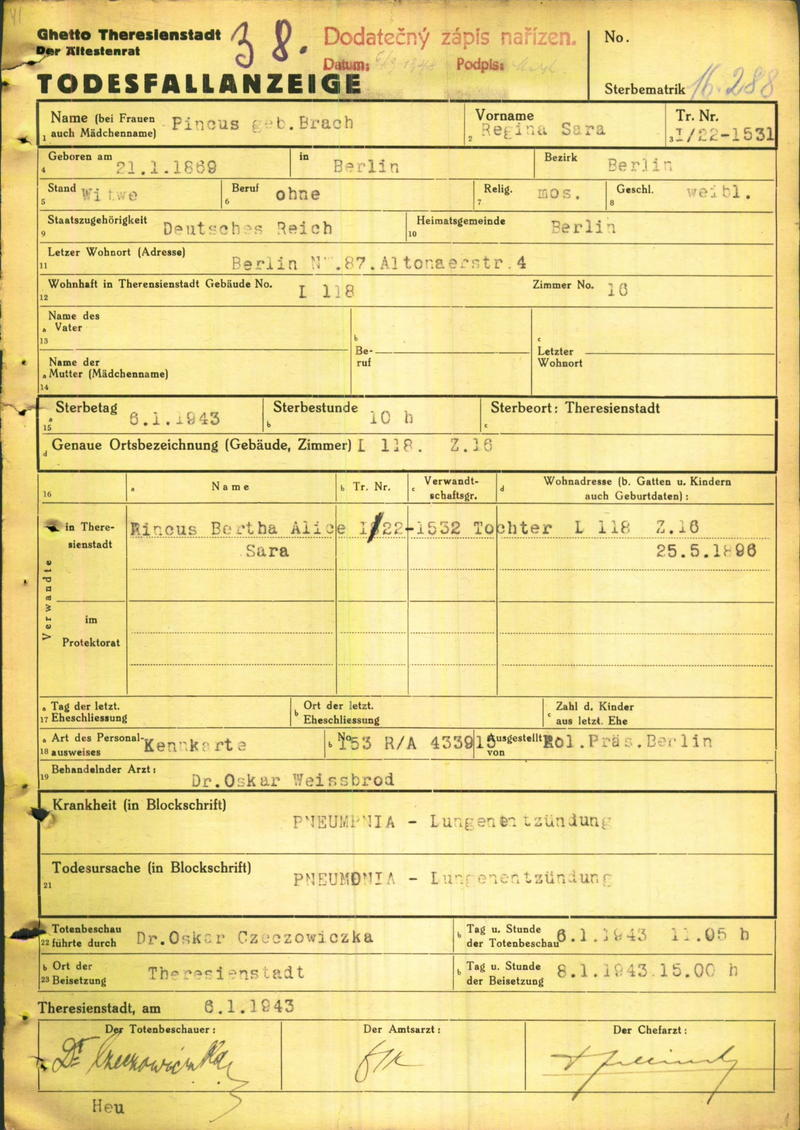 Ghetto Theresienstadt
Der Ältestenrat
38.
Dodatečný zápis nařízen.
Datum:
Podpis:
No.
TODESFALLANZEIGE
Sterbematrik 16.288
Name (bei Frauen auch Mädchenname) Pincus geb. Brach
1
Vorname Regina Sara
2
Tr. Nr. I/22-1531
3
Geboren am 21.1.1869 in Berlin Bezirk Berlin
4
Stand Witwe Beruf ohne Relig. mos. Geschl. weibl.
5 6 7 8
Staatszugehörigkeit Deutsches Reich Heimatsgemeinde Berlin
9 10
Letzer Wohnort (Adresse)
11 Berlin N .87.Altonaerstr.4
Wohnhaft in Therensienstadt Gebäude No. L 118 Zimmer No. 16
12
Name des
a Vater
13
b
Be-
ruf
c
Letzter
Wohnort
Name der
a Mutter (Mädchenname)
14
a Sterbetag 6.1.1943 Sterbestunde 10 h Sterbeort: Theresienstadt
15 b c
d Genaue Ortsbezeichnung (Gebäude, Zimmer) L 118. Z.16
16 a Name b Tr. Nr. c Verwandt-schaftsgr. d Wohnadresse (b. Gatten u. Kindern auch Geburtdaten) :
Verwandte
in There-sienstadt
Pincus Bertha Alice I/22-1532 Tochter L 118 Z.16
Sara 25.5.1896
im
Protektorat
a Tag der letzt.
17 Eheschliessung
b Ort der letzt.
Eheschliessung
c Zahl d. Kinder
aus letzt. Ehe
a Art des Personal-
18 ausweises Kennkarte b No. 153 R/A 433915 c ausgestellt von Pol.Präs.Berlin
19 Behandelnder Arzt: Dr.Oskar Weissbrod
Krankheit (in Blockschrift)
PNEUMPNIA - Lungenentzündung
Todesursache (in Blockschrift)
21 PNEUMONIA - Lungenentzündung
a Totenbeschau
22 führte durch Dr.Oskar Czeczowiczka b Tag u. Stunde der Totenbeschau 6.1.1943 11.05 h
b Ort der
23 Beisetzung Theresienstadt b Tag u. Stunde der Beisetzung 8.1.1943.15.00 h
Theresienstadt, am 6.1.1943
Der Totenbeschauer: Der Amtsarzt: Der Chefarzt:
Heu